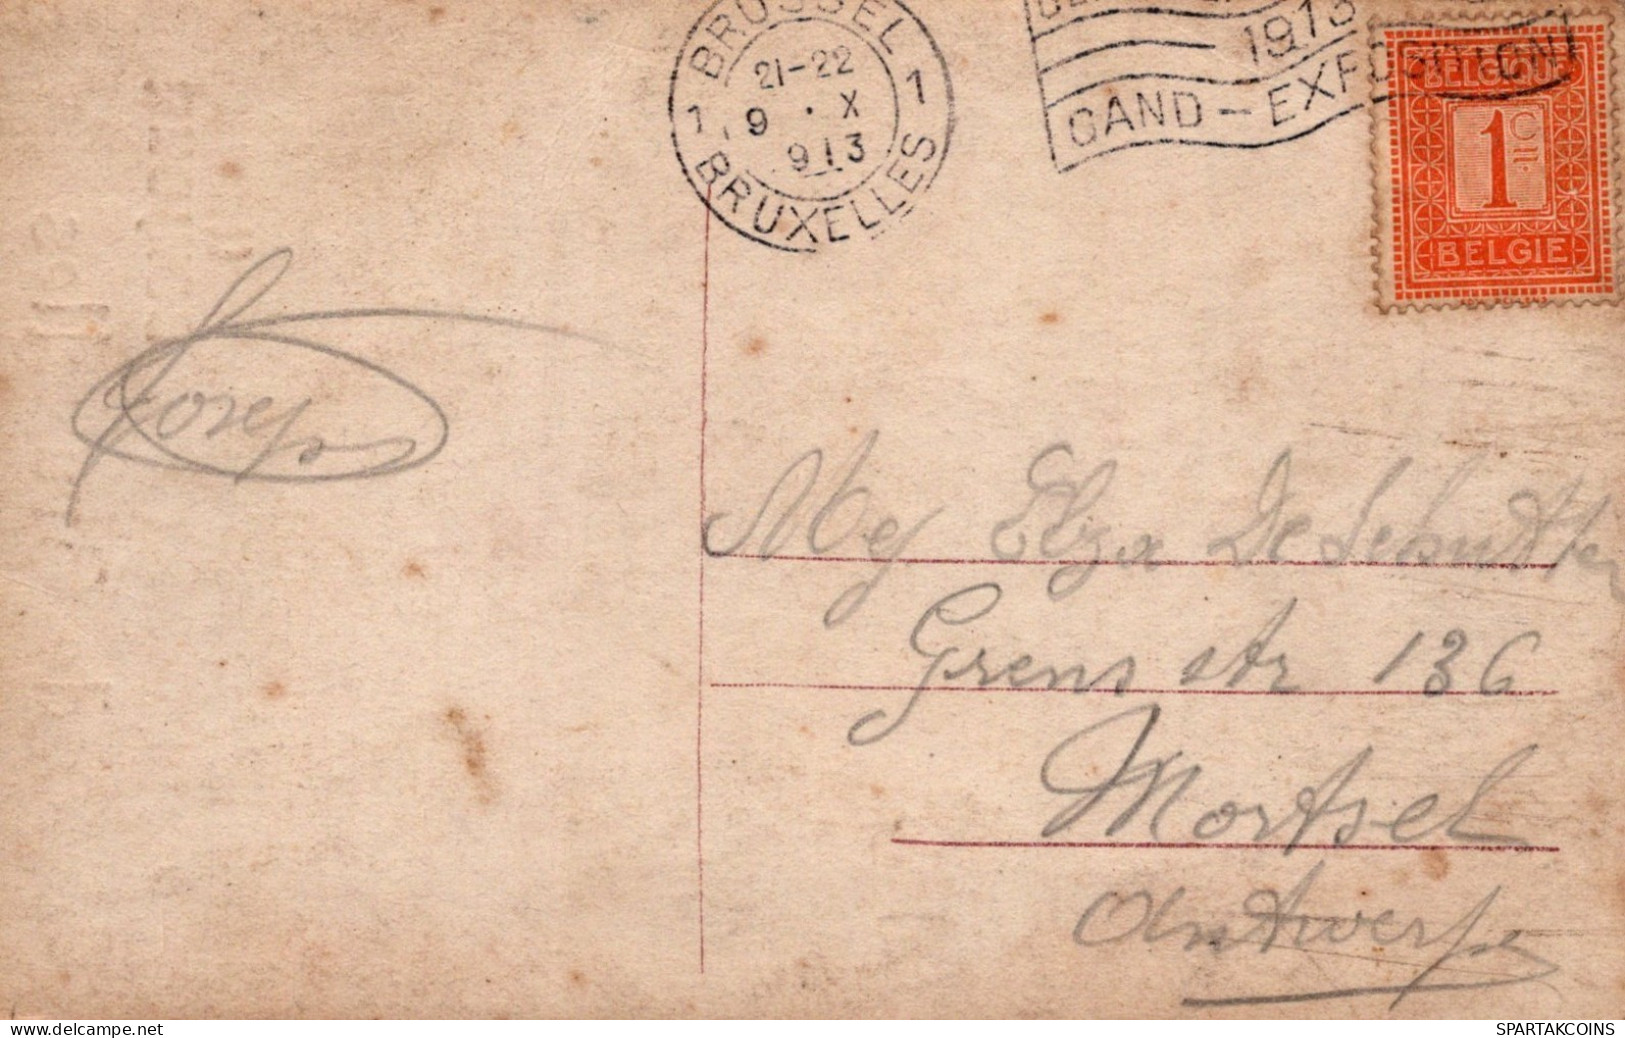 BRUSSEL
21-22
1 9 · X 1
913
BRUXELLES
1913
GAND – EXPOSITION
BELGIQUE
1 C
BELGIE
Josep
Mej Elza De Schutter
Grensstr 136
Mortsel
Antwerp
SPARTAKCOINS